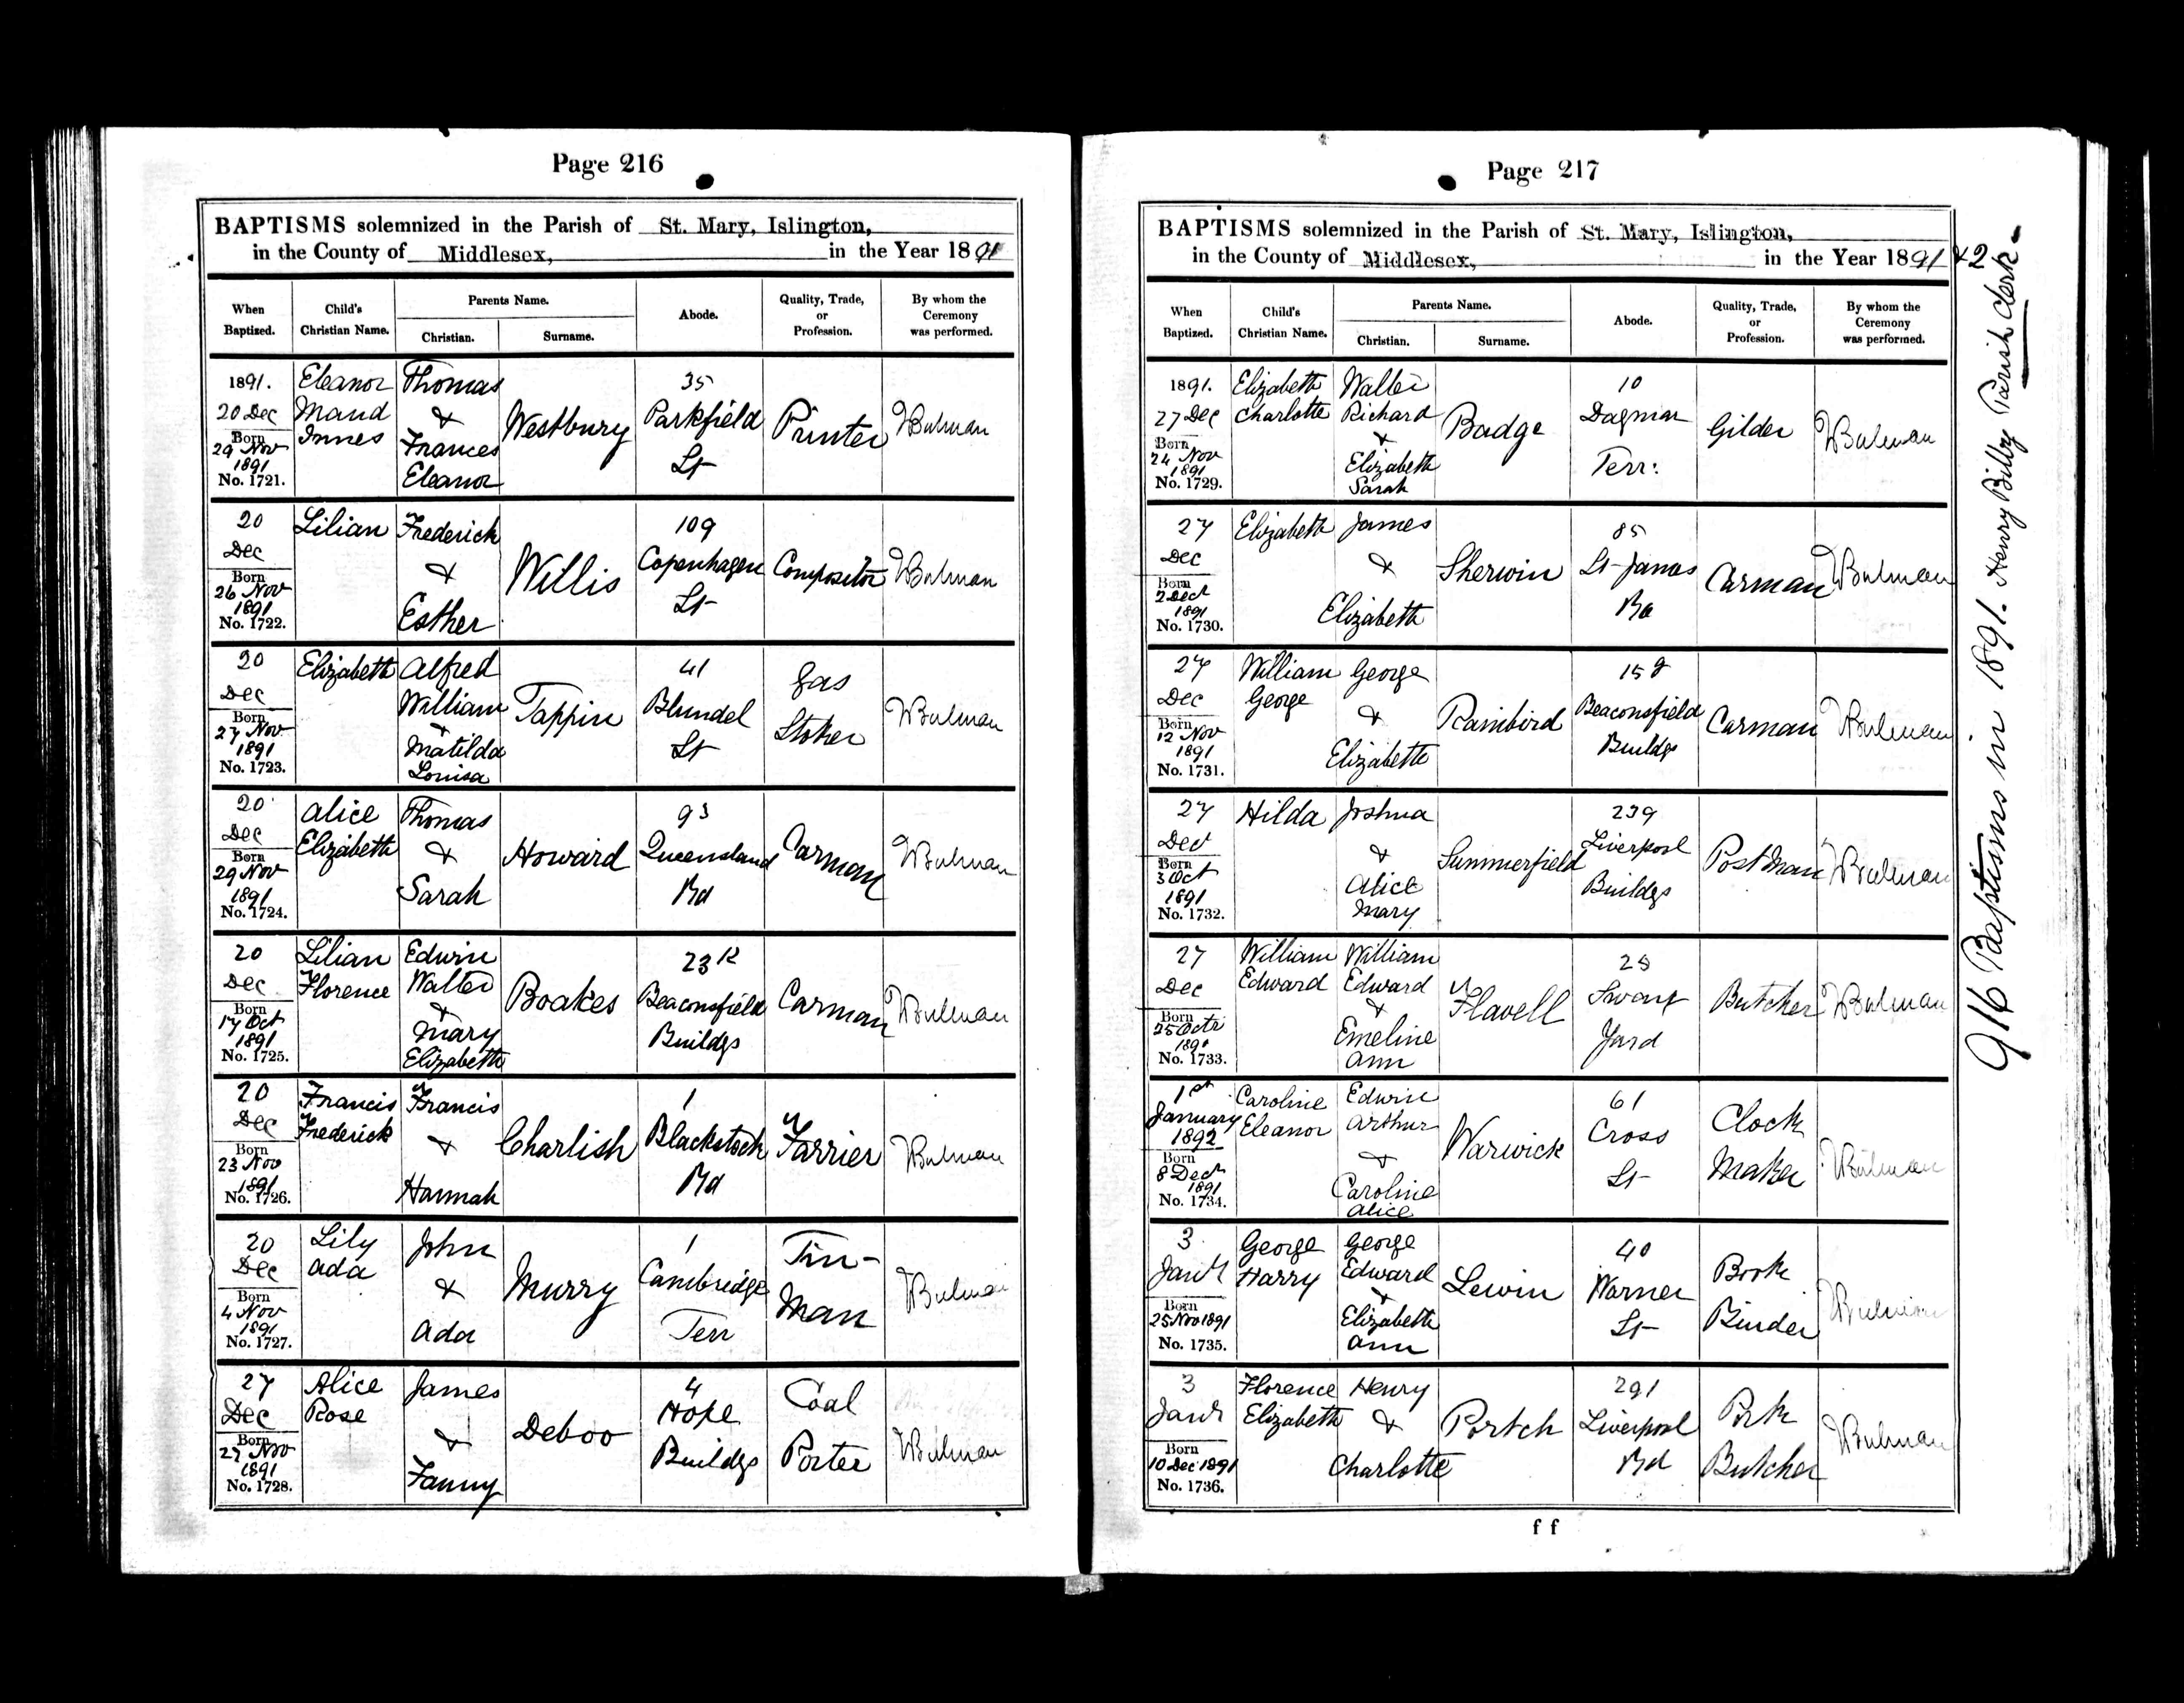 Page 216
BAPTISMS solemnized in the Parish of St. Mary, Islington,
in the County of Middlesex, in the Year 1891
When Baptized.
Child's Christian Name.
Parents Name.
Christian.
Surname.
Abode.
Quality, Trade, or Profession.
By whom the Ceremony was performed.
1891.
20 Dec
Born
29 Nov
1891
No. 1721.
Eleanor
Maud
Innes
Thomas
&
Frances
Eleanor
Westbury
35
Parkfield
St
Printer
WBulman
20
Dec
Born
26 Nov
1891
No. 1722.
Lilian
Frederick
&
Esther
Willis
109
Copenhagen
St
Compositor
WBulman
20
Dec
Born
27 Nov
1891
No. 1723.
Elizabeth
Alfred
William
&
Matilda
Louisa
Tappin
41
Blundel
St
Gas
Stoker
WBulman
20
Dec
Born
29 Nov
1891
No. 1724.
Alice
Elizabeth
Thomas
&
Sarah
Howard
93
Queensland
Rd
Carman
WBulman
20
Dec
Born
17 Oct
1891
No. 1725.
Lilian
Florence
Edwin
Walter
&
Mary
Elizabeth
Boakes
23 K
Beaconsfield
Buildgs
Carman
WBulman
20
Dec
Born
23 Nov
1891
No. 1726.
Francis
Frederick
Francis
&
Hannah
Charlish
1
Blackstock
Rd
Farrier
WBulman
20
Dec
Born
4 Nov
1891
No. 1727.
Lily
Ada
John
&
Ada
Murry
1
Cambridge
Terr
Tin-
Man
WBulman
27
Dec
Born
27 Nov
1891
No. 1728.
Alice
Rose
James
&
Fanny
Deboo
4
Hope
Buildgs
Coal
Porter
WBulman
Page 217
BAPTISMS solemnized in the Parish of St. Mary, Islington,
in the County of Middlesex, in the Year 1891 & 2
When Baptized.
Child's Christian Name.
Parents Name.
Christian.
Surname.
Abode.
Quality, Trade, or Profession.
By whom the Ceremony was performed.
1891.
27 Dec
Born
24 Nov
1891
No. 1729.
Elizabeth
Charlotte
Walter
Richard
&
Elizabeth
Sarah
Badge
10
Dagmar
Terr:
Gilder
WBulman
27
Dec
Born
2 Dec
1891
No. 1730.
Elizabeth
James
&
Elizabeth
Sherwin
85
St James
Rd
Carman
WBulman
27
Dec
Born
12 Nov
1891
No. 1731.
William
George
George
&
Elizabeth
Rainbird
15
Beaconsfield
Buildgs
Carman
WBulman
27
Dec
Born
3 Oct
1891
No. 1732.
Hilda
Joshua
&
Alice
Mary
Summerfield
239
Liverpool
Buildgs
Postman
WBulman
27
Dec
Born
25 Oct
1891
No. 1733.
William
Edward
William
Edward
&
Emeline
Ann
Flavell
Yard
Butcher
WBulman
1st
January
1892
Born
8 Dec
1891
No. 1734.
Caroline
Eleanor
Edwin
Arthur
&
Caroline
Alice
Warwick
61
Cross
St
Clock
Maker
WBulman
3
Jany
Born
25 Nov 1891
No. 1735.
George
Harry
George
Edward
&
Elizabeth
Ann
Lewin
40
Warner
St
Book
Binder
WBulman
3
Jany
Born
10 Dec 1891
No. 1736.
Florence
Elizabeth
Henry
&
Charlotte
Portch
291
Liverpool
Rd
Pork
Butcher
WBulman
f f
916 Baptisms in 1891. Henry Bilby Parish Clerk.